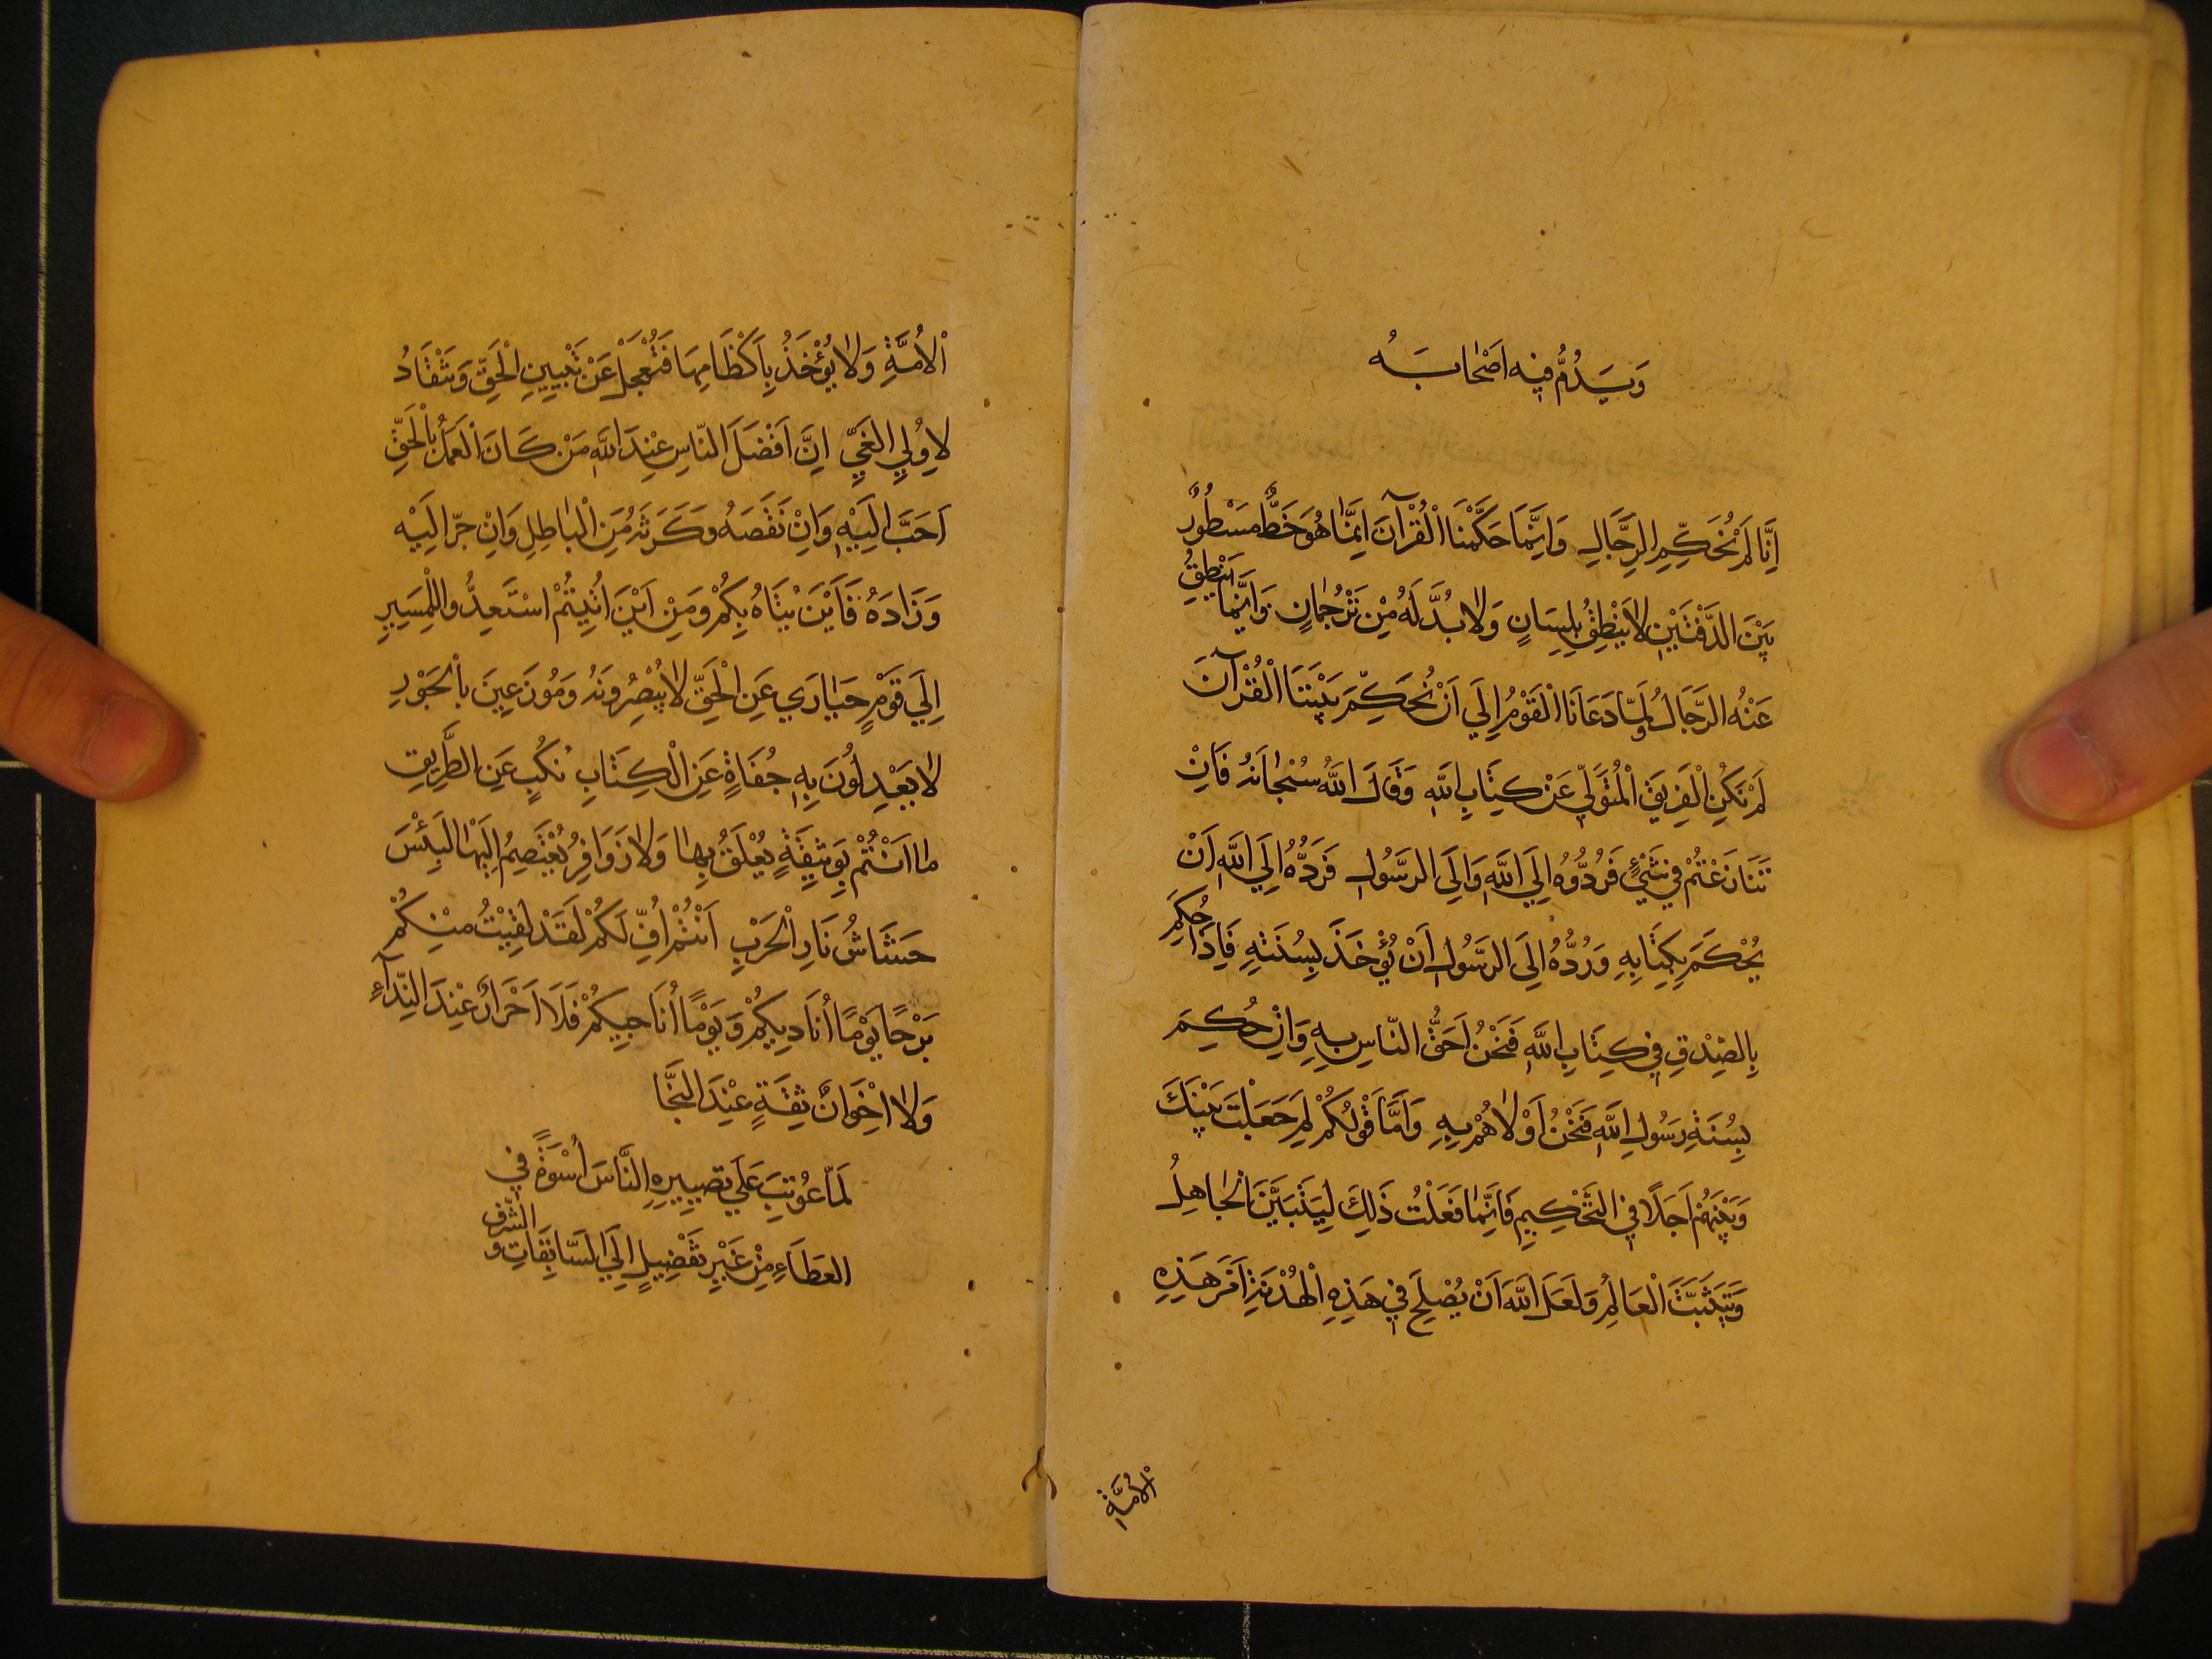 وَيَذُمُّ فِيهِ اَصْحَابَهُ
اِنَّا لَمْ نُحَكِّمِ الرِّجَالِ وَاِنَّمَا حَكَّمْنَا الْقُرْآنَ اِنَّمَا هُوَ خَطٌّ مَسْطُورٌ
بَيْنَ الدَّفَّتَيْنِ لَا يَنْطِقُ بِلِسَانٍ وَلَا بُدَّ لَهُ مِنْ تَرْجُمَانٍ وَاِنَّمَا يَنْطِقُ
عَنْهُ الرِّجَالُ وَلَمَّا دَعَانَا الْقَوْمُ اِلَي اَنْ نُحَكِّمَ بَيْنَنَا الْقُرْآنَ
لَمْ نَكُنِ الْفَرِيقَ الْمُتَوَلِّيَ عَنْ كِتَابِ اللّٰهِ وَقَالَ اللّٰهُ سُبْحَانَهُ فَاِنْ
تَنَازَعْتُمْ فِي شَيْءٍ فَرُدُّوهُ اِلَي اللّٰهِ وَاِلَي الرَّسُولِ فَرَدُّهُ اِلَي اللّٰهِ اَنْ
نُحْكَمَ بِكِتَابِهِ وَرُدُّهُ اِلَي الرَّسُولِ اَنْ نُؤْخَذَ بِسُنَّتِهِ فَاِذَا حُكِمَ
بِالصِّدْقِ فِي كِتَابِ اللّٰهِ فَنَحْنُ اَحَقُّ النَّاسِ بِهِ وَاِنْ حُكِمَ
بِسُنَّةِ رَسُولِ اللّٰهِ فَنَحْنُ اَوْلَاهُمْ بِهِ وَاَمَّا قَوْلُكُمْ لِمَ جَعَلْتَ بَيْنَكَ
وَبَيْنَهُمْ اَجَلًا فِي التَّحْكِيمِ فَاِنَّمَا فَعَلْتُ ذَلِكَ لِيَتَبَيَّنَ الْجَاهِلُ
وَيَتَثَبَّتَ الْعَالِمُ وَلَعَلَّ اللّٰهَ اَنْ يُصْلِحَ فِي هَذِهِ الْهُدْنَةِ اَمْرَ هَذِهِ
الْاُمَّةِ
الْاُمَّةِ وَلَا يُؤْخَذُ بِاَكْظَامِهَا فَتُعْجَلَ عَنْ تَبْيِينِ الْحَقِّ وَتَنْقَادُ
لِاُولِي الْغَيِّ اِنَّ اَفْضَلَ النَّاسِ عِنْدَ اللّٰهِ مَنْ كَانَ الْعَمَلُ بِالْحَقِّ
اَحَبَّ اِلَيْهِ وَاِنْ نَقَصَهُ وَكَرَثَهُ مِنَ الْبَاطِلِ وَاِنْ جَرَّ اِلَيْهِ
وَزَادَهُ فَاَيْنَ يُتَاهُ بِكُمْ وَمِنْ اَيْنَ اُتِيتُمْ اسْتَعِدُّوا لِلْمَسِيرِ
اِلَي قَوْمٍ حَيَارَي عَنِ الْحَقِّ لَا يُبْصِرُونَهُ وَمُوزَعِينَ بِالْجَوْرِ
لَا يَعْدِلُونَ بِهِ جُفَاةٍ عَنِ الْكِتَابِ نُكُبٍ عَنِ الطَّرِيقِ
مَا اَنْتُمْ بِوَثِيقَةٍ يُعْلَقُ بِهَا وَلَا زَوَافِرُ يُعْتَصِمُ اِلَيْهَا لَبِئْسَ
حَشَّاشُ نَارِ الْحَرْبِ اَنْتُمْ اُفٍّ لَكُمْ لَقَدْ لَقِيْتُ مِنْكُمْ
بَرْحًا يَوْمًا اُنَادِيكُمْ وَيَوْمًا اُنَاجِيكُمْ فَلَا اَحْرَارٌ عِنْدَ النِّدَاءِ
وَلَا اِخْوَانٌ ثِقَةٍ عِنْدَ النَّجَا
لَمَّا عُوتِبَ عَلَي تَصْيِيرِهِ النَّاسَ اُسْوَةً فِي
الْعَطَاءِ مِنْ غَيْرِ تَفْضِيلٍ اِلَي السَّابِقَاتِ وَ الشَّرَفِ